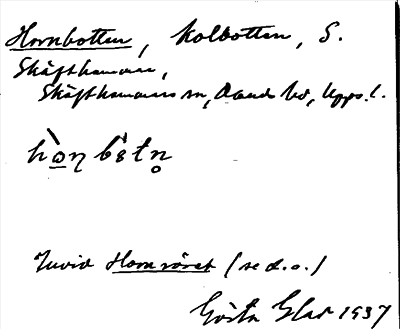 Hornbotten, Kolbotten, S.
Skäfthammar,
Skäfthammars sn, Olands hd, Upps. l.
hò̲ɳ bǒtn̥
Invid Hornröret (se d.o.)
Gösta Glas 1937